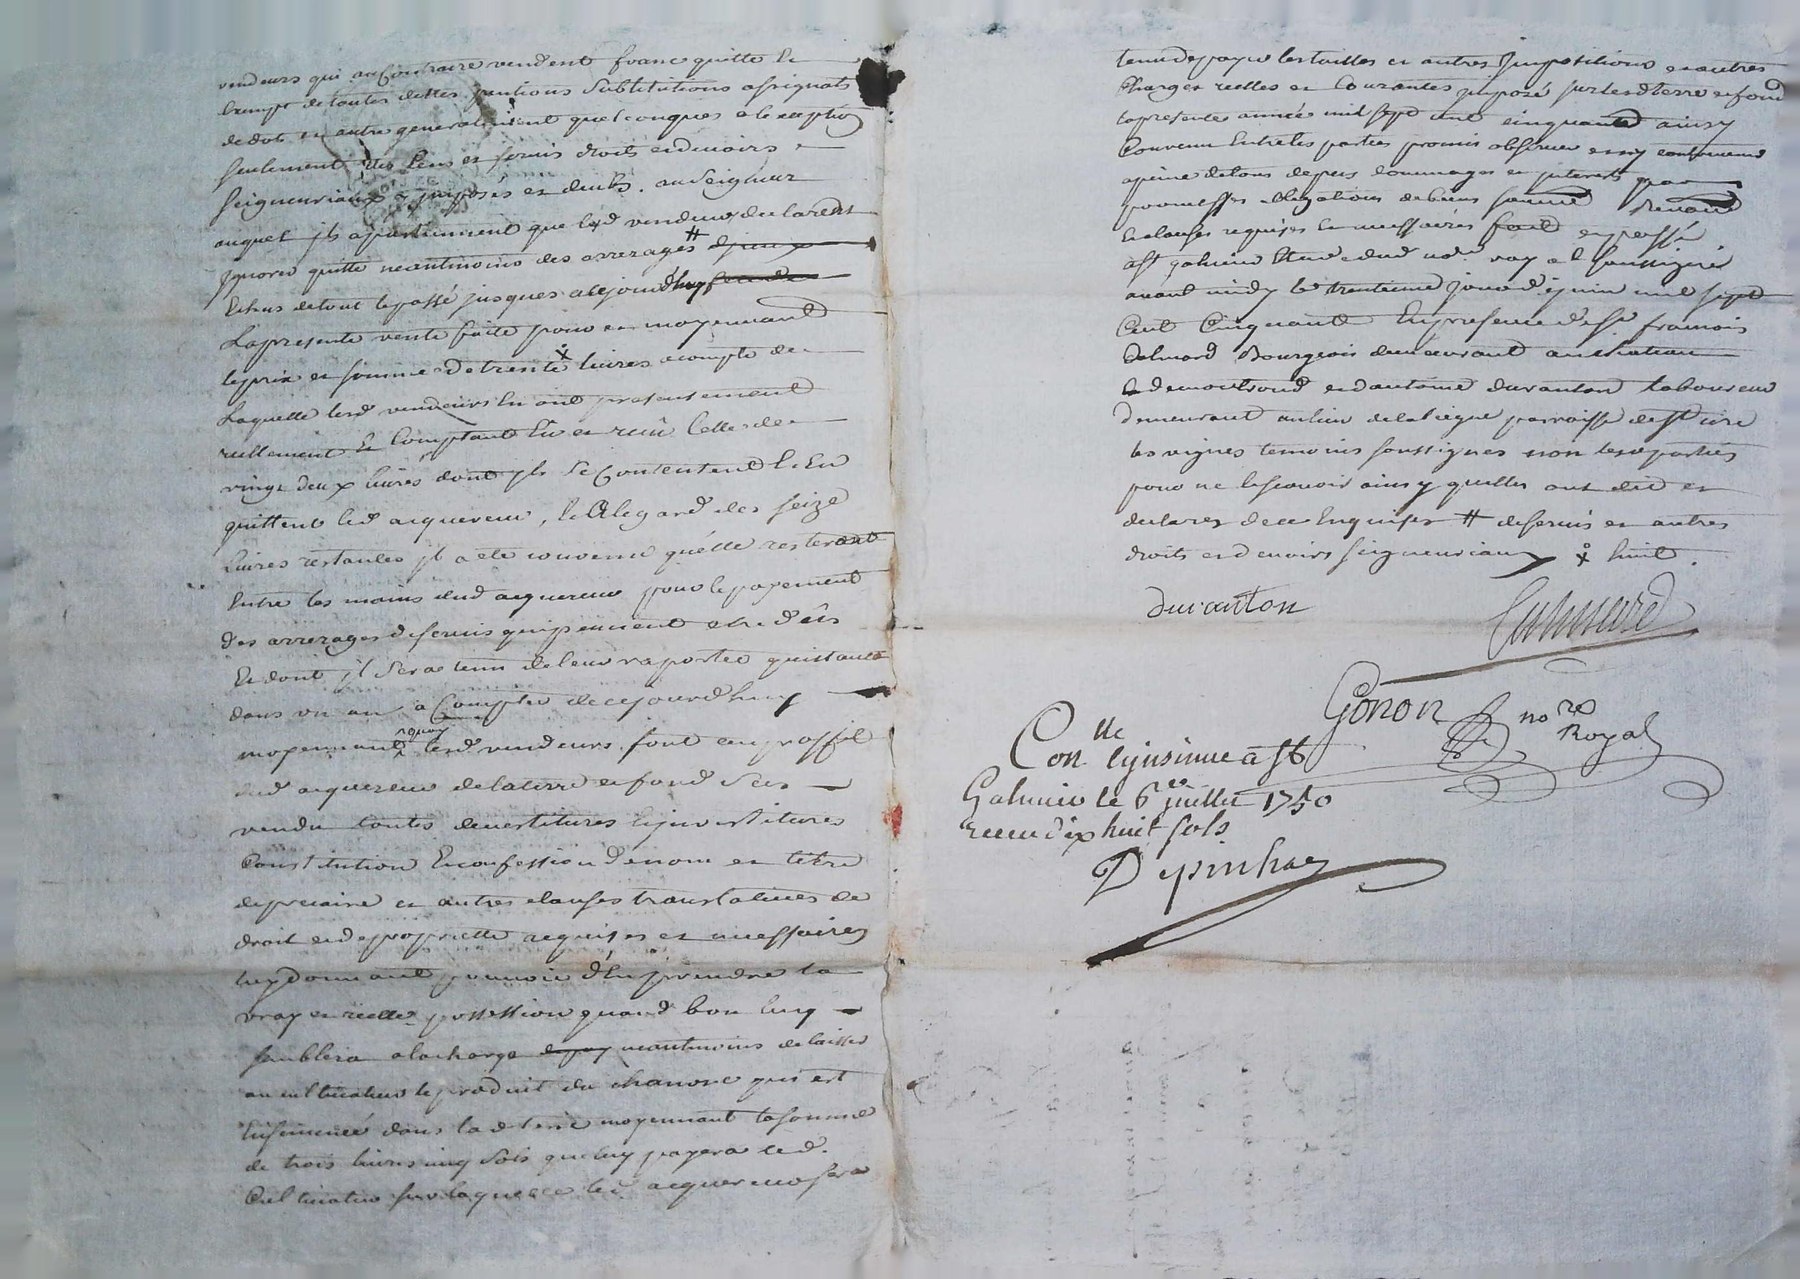 vendeurs qui au Contraire vendent franc quitte et
Exempt de toutes dettes pentions Substitutions assignats
de dot et autre generallement quelconques a lexception
seulement des Cens et servis droits et devoirs
seigneuriaux imposés et deubs au Seigneur
auquel ils apartiennent que lesd vendeurs declarent
Ignorer quitte neantmoins des arrerages #
Echus de tout le passé jusques a cejourdhuy
La presente vente faitte pour et moyennant
le prix et somme de trente x livres acompte de
Laquelle lesd vendeurs En ont presentement
reellement et Comptant Eu et receu Celle de
vingt deux livres dont ils se Contentent et En
quittent led acquereur, Et a legard des seize
Livres restantes il a ete convenu quelle resteront
Entre les mains dud acquereur pour le payement
des arrerages de servis qui peuvent etre dûs
Et dont il sera tenu de leur raporter quittance
dans un an a Compter de cejourdhuy
moyennant quoy lesd vendeurs sont au proffit
dud acquereur de la terre et fond sus
vendu toutes devestitures Investitures
Constitution Et confession de nom et titre
de precaire et autres clauses translatives de
droit et de proprietté requises et necessaires
luy donnant pouvoir d'En prendre la
vray et réelle possession quand bon luy
semblera a la charge neantmoins de laisser
au cultivateur le produit du chanvre qui est
Ensemencé dans lad terre moyennant la somme
de trois livres cinq sols que luy payera led.
Cultivateur sur laquelle led acquereur sera
tenu de payer les tailles et autres Impositions et autres
Charges reelles et Courantes imposé sur lesd terre et fond
la presente année mil sept cent cinquante ainsy
Convenu Entre les parties promis observer et ny contrevenir
a peine de tous depens dommages et interets par
promesses obligations de biens soumis renoncé
Et clauses requises Et necessaires fait et passé
a St galmier Etude dud nore roy al soussigné
avant midy le trentieme jour de juin mil sept
Cent Cinquante En presence de sr francois
Bourgeois demeurant au chateau
de montrond et dantoine duranton laboureur
Demeurant au lieu de parroisse de st cire
les vignes temoins soussignes non lesd parties
pour ne le scavoir ainsy quelles ont dit et
declarez de ce Enquises # de servis et autres
droits et devoirs seigneuriaux x huit.
duranton
Gonon nore Royal
Conlle Et insinué a St
Galmier le 6e juillet 1750
receu dix huit sols
Depinhac